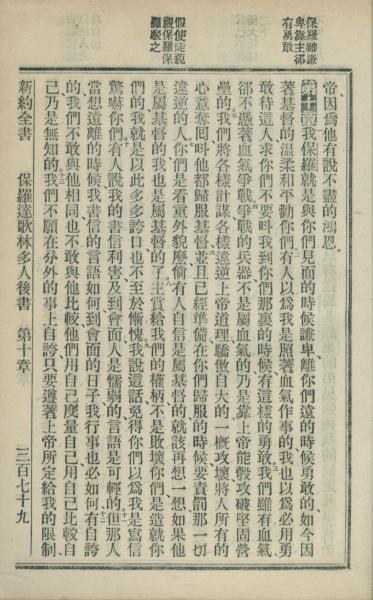 保羅雖謙
卑靠主卻
有勇敢
假使徒藐
視保羅保
羅駁之
帝因爲他有說不盡的鴻恩
第十章我保羅就是與你們見面的時候謙卑離你們遠的時候勇敢的如今因
著基督的溫柔和平勸你們有人以爲我是照著血氣作事的我也以爲必用勇
敢待這人求你們不要呌我到你們那裏的時候有這樣的勇敢我們雖有血氣
卻不憑著血氣爭戰爭戰的兵器不是屬血氣的乃是靠上帝能彀攻破堅固營
壘的我們將各樣計謀各樣違逆上帝道理驕傲自大的一槪攻壞將人所有的
心意奪囘呌他都歸服基督並且已經準備在你們歸服的時候要責罰那一切
違逆的人你們是看重外貌麼倘有人自信是屬基督的就該再想一想如果他
是屬基督的我也是屬基督的了主賞給我們的權柄不是敗壞你們是造就你
們的我就是以此多多誇口也不至於慚愧我說這話免得你們以爲我是寫信
驚嚇你們有人說我的書信利害及到會面人是懦弱的言語是可輕的但那人
當想遠離的時候我書信的言語如何到會面的日子我行事也必如何有自誇
的我們不敢與他相同也不敢與他比較他們用自己度量自己用自己比較自
己乃是無知的我們不願在分外的事上自誇只要遵著上帝所定給我的限制
新約全書 保羅達歌林多人後書 第十章 三百七十九